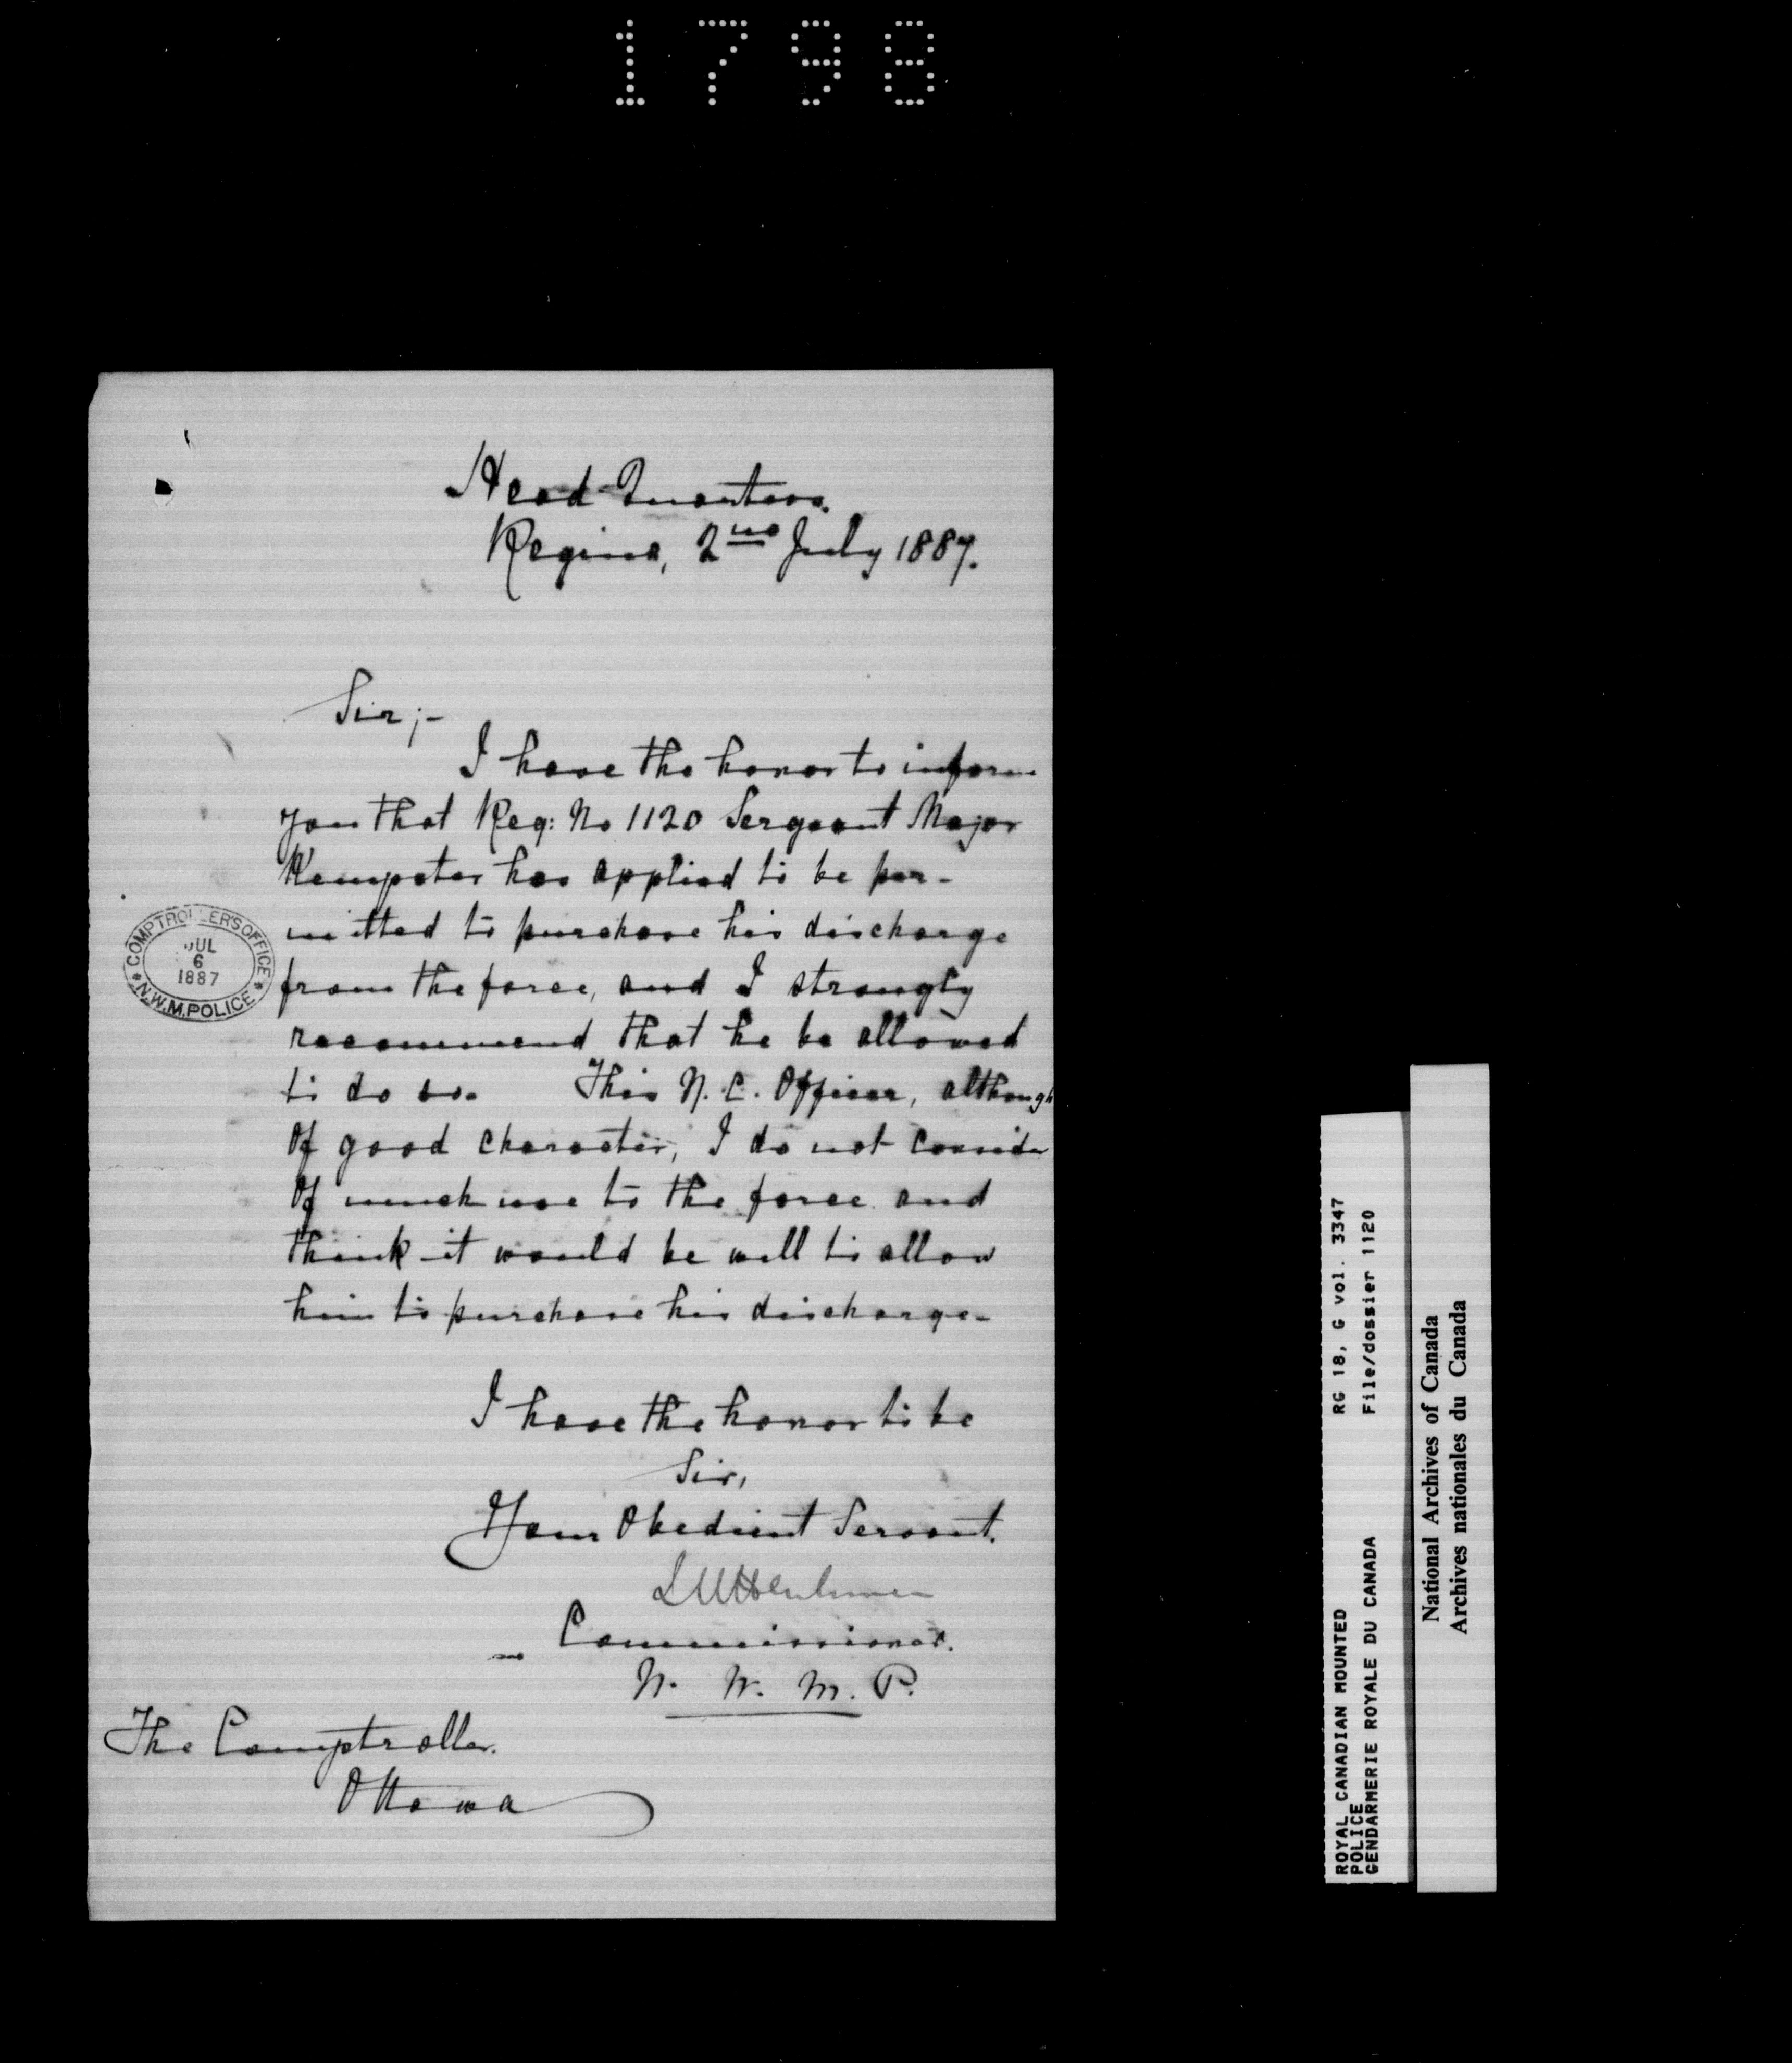 1798
Head Quarters.
Regina, 2nd July 1887.
Sir;-
I have the honor to inform
you that Reg: No 1120 Sergeant Major
Kempster has applied to be per-
mitted to purchase his discharge
from the force, and I strongly
recommend that he be allowed
to do so. This N. C. Officer, although
of good character, I do not consider
of much use to the force and
think it would be well to allow
him to purchase his discharge-
I have the honor to be
Sir,
Your Obedient Servant.
Commissioner.
N. W. M. P.
The Comptroller.
Ottawa
COMPTROLLER'S OFFICE
JUL
6
1887
N.W.M. POLICE
ROYAL CANADIAN MOUNTED
POLICE
GENDARMERIE ROYALE DU CANADA
RG 18, G vol. 3347
File/dossier 1120
National Archives of Canada
Archives nationales du Canada